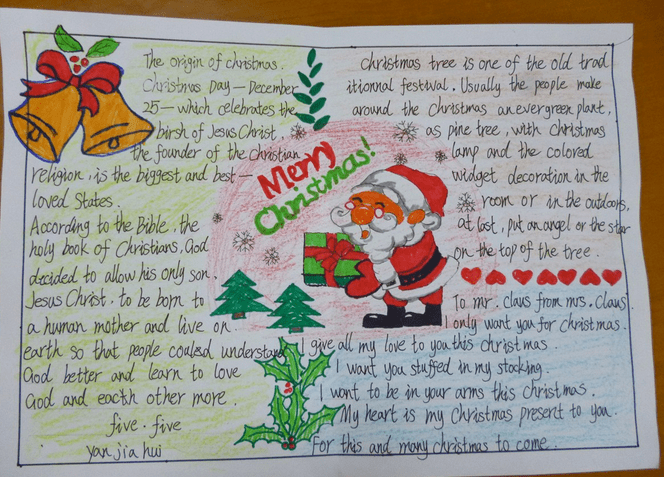 The origin of christmas.
Christmas Day — December
25 — which celebrates the
birsh of Jesus Christ,
the founder of the Christian
religion, is the biggest and best—
loved States.
According to the Bible, the
holy book of Christians, God
decided to allow his only son.
Jesus Christ. to be born to
a human mother and live on
earth so that people couled understand
God better and learn to love
God and eacth other more.
five. five
yan jia hui
Merry
Christmas!
Christmas tree is one of the old trad
itionnal festival. Usually the people make
around the Christmas an evergreen plant,
as pine tree, with christmas
lamp and the colored
widget decoration in the
room or in the outdoors,
at last, put an angel or the star
on the top of the tree.
To mr. claus from mrs. Claus.
I only want you for christmas.
I give all my love to you this christmas.
I want you stuffed in my stocking.
I want to be in your arms this christmas.
My heart is my Christmas present to you.
For this and many christmas to come.